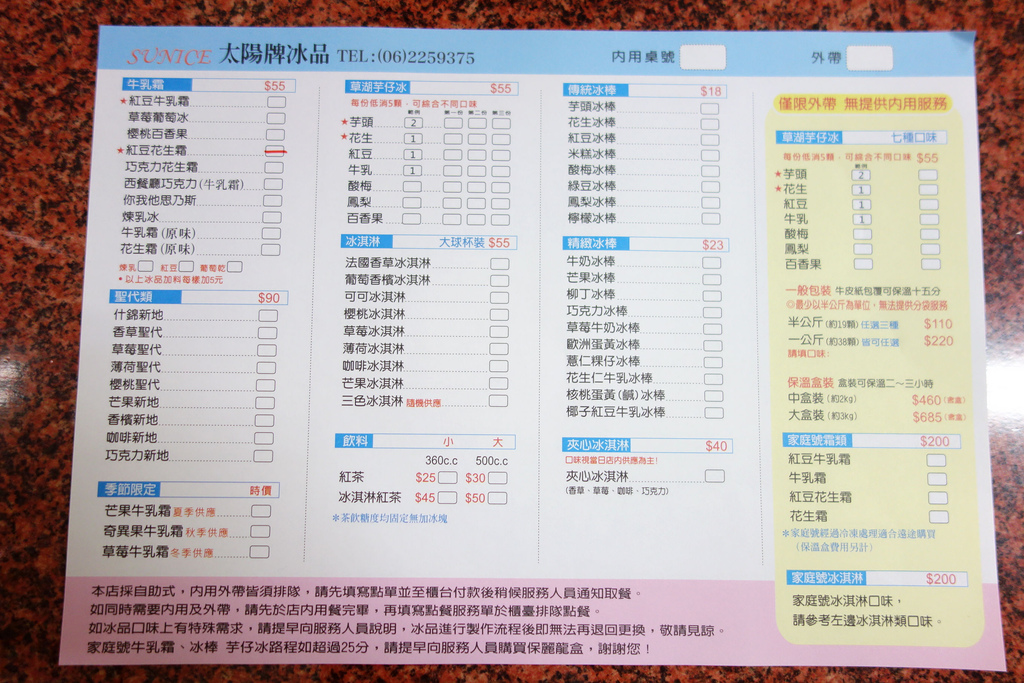 SUNICE 太陽牌冰品 TEL:(06)2259375 內用桌號 外帶
牛乳霜 $55
★紅豆牛乳霜
草莓葡萄冰
櫻桃百香果
★紅豆花生霜
巧克力花生霜
西餐廳巧克力(牛乳霜)
你我他思乃斯
煉乳冰
牛乳霜(原味)
花生霜(原味)
煉乳 紅豆 葡萄乾
*以上冰品加料每樣加5元
聖代類 $90
什錦新地
香草聖代
草莓聖代
薄荷聖代
櫻桃聖代
芒果新地
香檳新地
咖啡新地
巧克力新地
季節限定 時價
芒果牛乳霜 夏季供應
奇異果牛乳霜 秋季供應
草莓牛乳霜 冬季供應
草湖芋仔冰 $55
每份低消5顆，可綜合不同口味
範例 第一份 第二份 第三份
★芋頭 2
★花生 1
紅豆 1
牛乳 1
酸梅
鳳梨
百香果
冰淇淋 大球杯裝 $55
法國香草冰淇淋
葡萄香檳冰淇淋
可可冰淇淋
櫻桃冰淇淋
草莓冰淇淋
薄荷冰淇淋
咖啡冰淇淋
芒果冰淇淋
三色冰淇淋 隨機供應
飲料 小 大
360c.c 500c.c
紅茶 $25 $30
冰淇淋紅茶 $45 $50
*茶飲糖度均固定無加冰塊
傳統冰棒 $18
芋頭冰棒
花生冰棒
紅豆冰棒
米糕冰棒
酸梅冰棒
綠豆冰棒
鳳梨冰棒
檸檬冰棒
精緻冰棒 $23
牛奶冰棒
芒果冰棒
柳丁冰棒
巧克力冰棒
草莓牛奶冰棒
歐洲蛋黃冰棒
薏仁粿仔冰棒
花生仁牛乳冰棒
核桃蛋黃(鹹)冰棒
椰子紅豆牛乳冰棒
夾心冰淇淋 $40
口味視當日店內供應為主!
夾心冰淇淋
(香草．草莓．咖啡．巧克力)
僅限外帶 無提供內用服務
草湖芋仔冰 七種口味
每份低消5顆，可綜合不同口味 $55
範例
★芋頭 2
★花生 1
紅豆 1
牛乳 1
酸梅
鳳梨
百香果
一般包裝 牛皮紙包覆可保溫十五分
◎最少以半公斤為單位，無法提供分袋服務
半公斤(約19顆)任選三種 $110
一公斤(約38顆)皆可任選 $220
請填口味:
保溫盒裝 盒裝可保溫二～三小時
中盒裝(約2kg) $460(含盒)
大盒裝(約3kg) $685(含盒)
家庭號霜類 $200
紅豆牛乳霜
牛乳霜
紅豆花生霜
花生霜
*家庭號經過冷凍處理適合遠途購買
(保溫盒費用另計)
家庭號冰淇淋 $200
家庭號冰淇淋口味，
請參考左邊冰淇淋類口味。
本店採自助式，內用外帶皆須排隊，請先填寫點單並至櫃台付款後稍候服務人員通知取餐。
如同時需要內用及外帶，請先於店內用餐完畢，再填寫點餐服務單於櫃臺排隊點餐。
如冰品口味上有特殊需求，請提早向服務人員說明，冰品進行製作流程後即無法再退回更換，敬請見諒。
家庭號牛乳霜、冰棒 芋仔冰路程如超過25分，請提早向服務人員購買保麗龍盒，謝謝您！